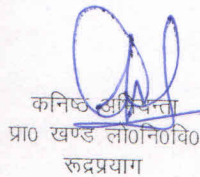 कनिष्ठ अभियन्ता
प्रा० खण्ड लो०नि०वि०
रूद्रप्रयाग